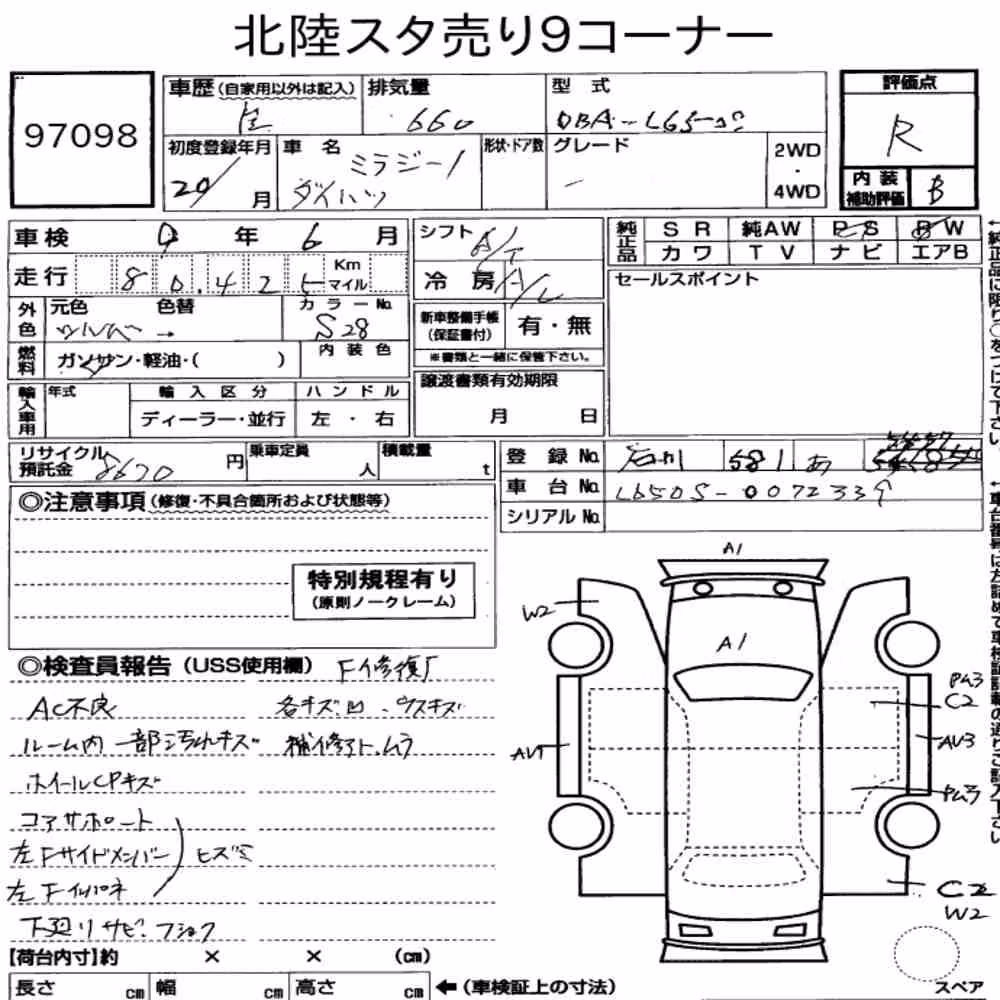 北陸スタ売り9コーナー
97098
車歴(自家用以外は記入) 排気量 型式
自 660 DBA-L650S
評価点
R
内装補助評価 B
初度登録年月 車名 形状・ドア数 グレード
20/ 月 ミラジーノ ダイハツ -
2WD・4WD
車検 9年6月
走行 80,425 Km マイル
外色 元色 色替 カラーNo.
シルバー → S28
燃料 ガソリン・軽油・( ) 内装色
輸入車用 年式 輸入区分 ハンドル
ディーラー・並行 左・右
シフト A/T
冷房 A/C
新車整備手帳(保証書付) 有・無
※書類と一緒に保管下さい。
譲渡書類有効期限
月 日
純正品 SR 純AW PS PW
カワ TV ナビ エアB
セールスポイント
←純正品に限り○をつけて下さい
リサイクル預託金 8670 円 乗車定員 人 積載量 t
登録No. 石川 581 あ
車台No. L650S-0072339
シリアルNo.
◎注意事項(修復・不具合箇所および状態等)
特別規程有り
(原則ノークレーム)
◎検査員報告(USS使用欄) F修復歴
AC不良 各キズ凹・ウスキズ
ルーム内一部汚れキズ 補修アト、ムラ
ホイールCPキズ
コアサポート
左Fサイドメンバー ヒズミ
左Fインパネ
下廻りサビ・フショク
A1
W2
A1
PM3
C2
AV1
AV3
PM3
C2
W2
スペア
【荷台内寸】約 × × (cm)
長さ cm 幅 cm 高さ cm ←(車検証上の寸法)